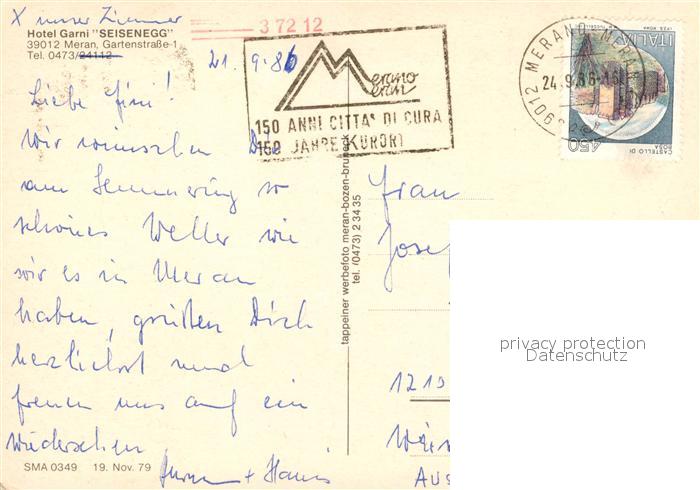 X unser Zimmer
Hotel Garni "SEISENEGG"
39012 Meran, Gartenstraße 1
Tel. 0473/24112
3 72 12
21.9.86
Merano
Meran
150 ANNI CITTA' DI CURA
150 JAHRE KURORT
39012 MERANO MERAN
24.9.86-16
ITALIA
450
CASTELLO DI
ROSA
Liebe Fini!
Wir wünschen Dir
am Semmering so
schönes Wetter wie
wir es in Meran
haben, grüßen Dich
herzlichst und
freuen uns auf ein
Wiedersehen
+ Hansi
SMA 0349 19. Nov. 79
tappeiner werbefoto meran-bozen-brunec
tel. (0473) 2 34 35
Frau
Josef
1210
Wien
Aus
privacy protection
Datenschutz